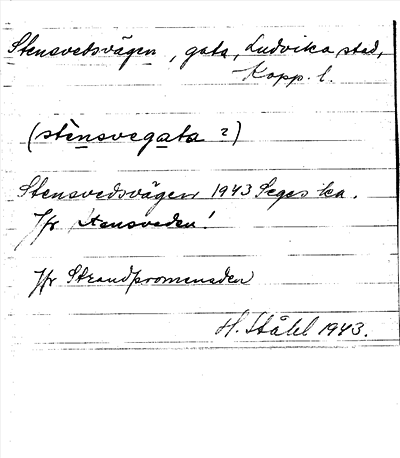 Stensvetsvägen, gata, Ludvika stad,
Kopp. l.
(stènsvegata ?)
Stensvedsvägen 1943
Jfr Stensveden!
Jfr Strandpromenaden
H. Ståhl 1943.